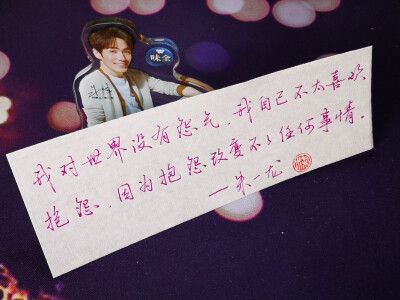 味全
我对世界没有怨气，我自己不太喜欢
抱怨，因为抱怨改变不了任何事情。
——朱一龙